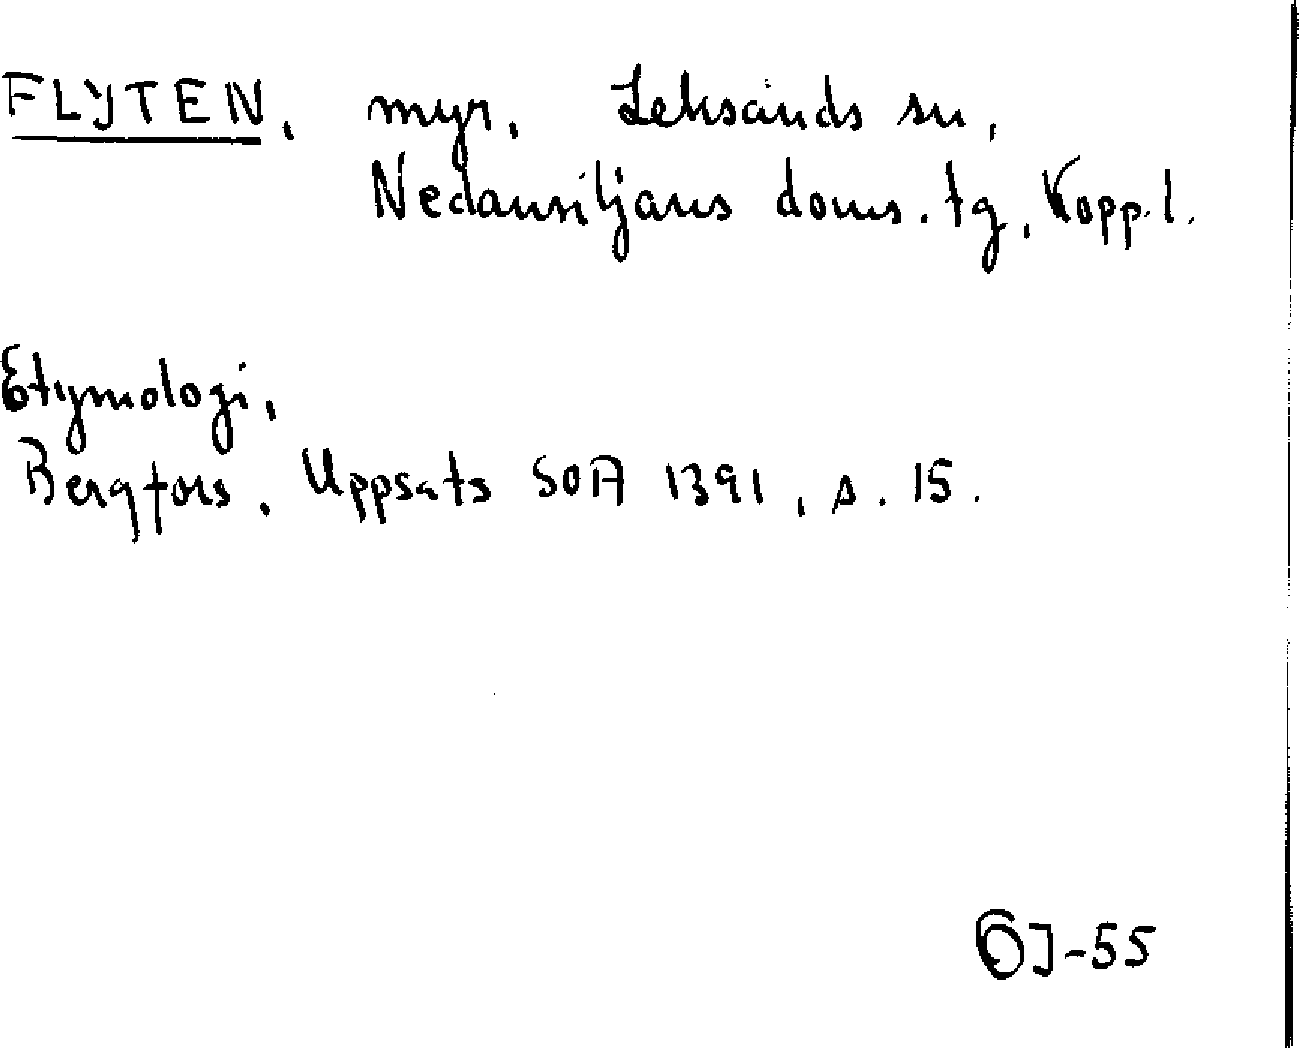 FLYTEN, myr, Leksands sn,
Nedansiljans doms. tg, Kopp. l.
Etymologi,
Bergfors, Uppsats SOA 1391, s. 15.
ÖJ-55